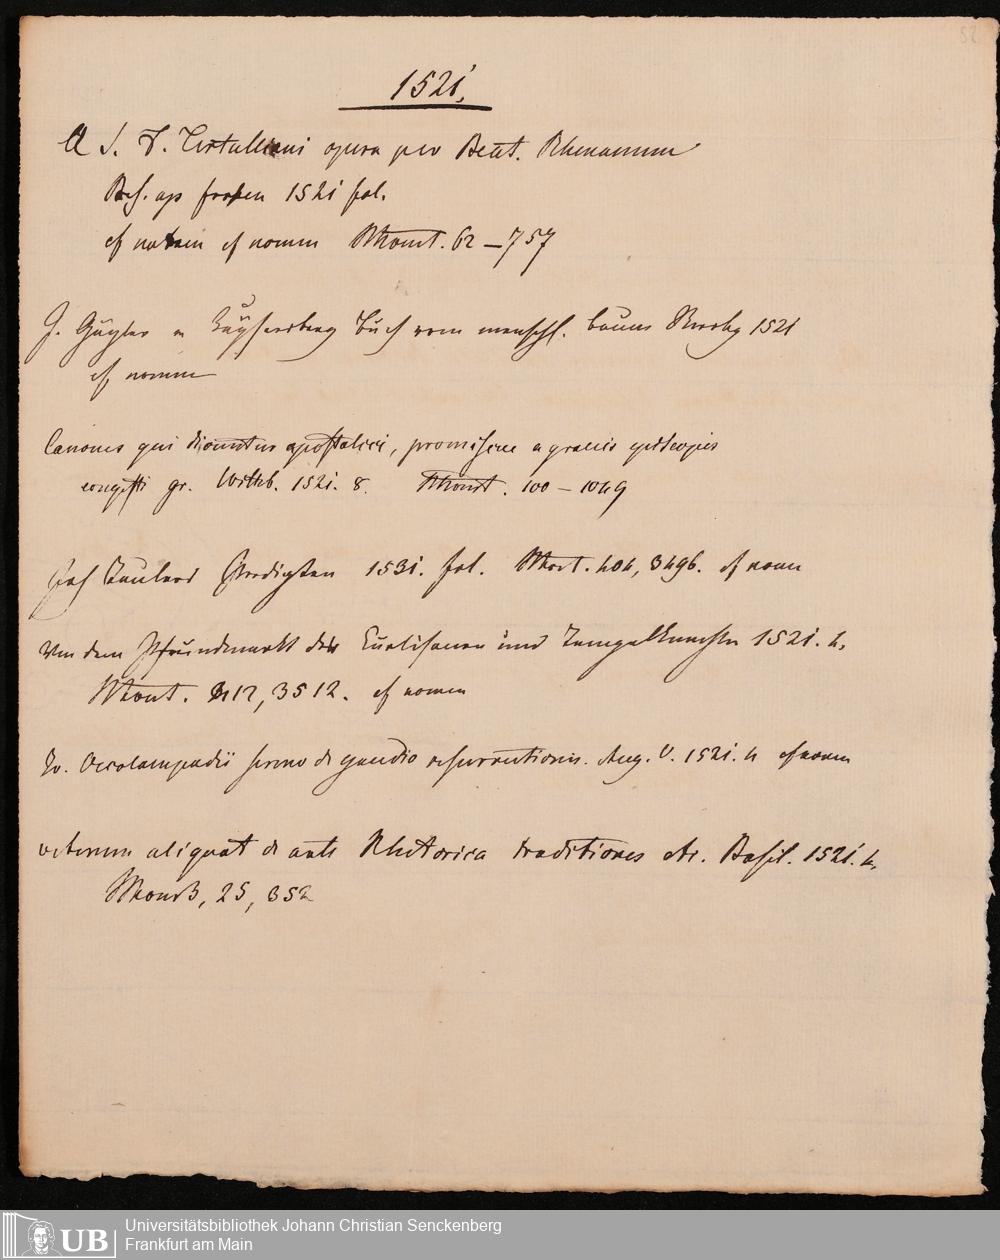 52
1521.
Q S. F. Tertulliani opera per Beat. Rhenanum
Bas. ap froben 1521 fol.
cf nomen Mont. 62 – 757
J. Gäyler v Kaÿsersberg Buch vom menschl. baum Strasbg 1521
cf nomen
Canones qui dicuntur apostolici, a graecis episcopis
congesti gr. Wittb. 1521. 8. Mont. 100 – 1049
Joh Taulers Predigten 1531. fol. Mont. 404, 3496. cf nomen
Von dem Pfründmarkt der Curtisanen und Tempelknechte 1521. 4.
Mont. 412, 3512. cf nomen
Jo. Oecolampadii sermo de gaudio resurrectionis. Aug. V. 1521. 4 cf nomen
veterum aliquot de arte Rhetorica traditiones etc. Basil. 1521. 4.
25, 352
UB
Universitätsbibliothek Johann Christian Senckenberg
Frankfurt am Main